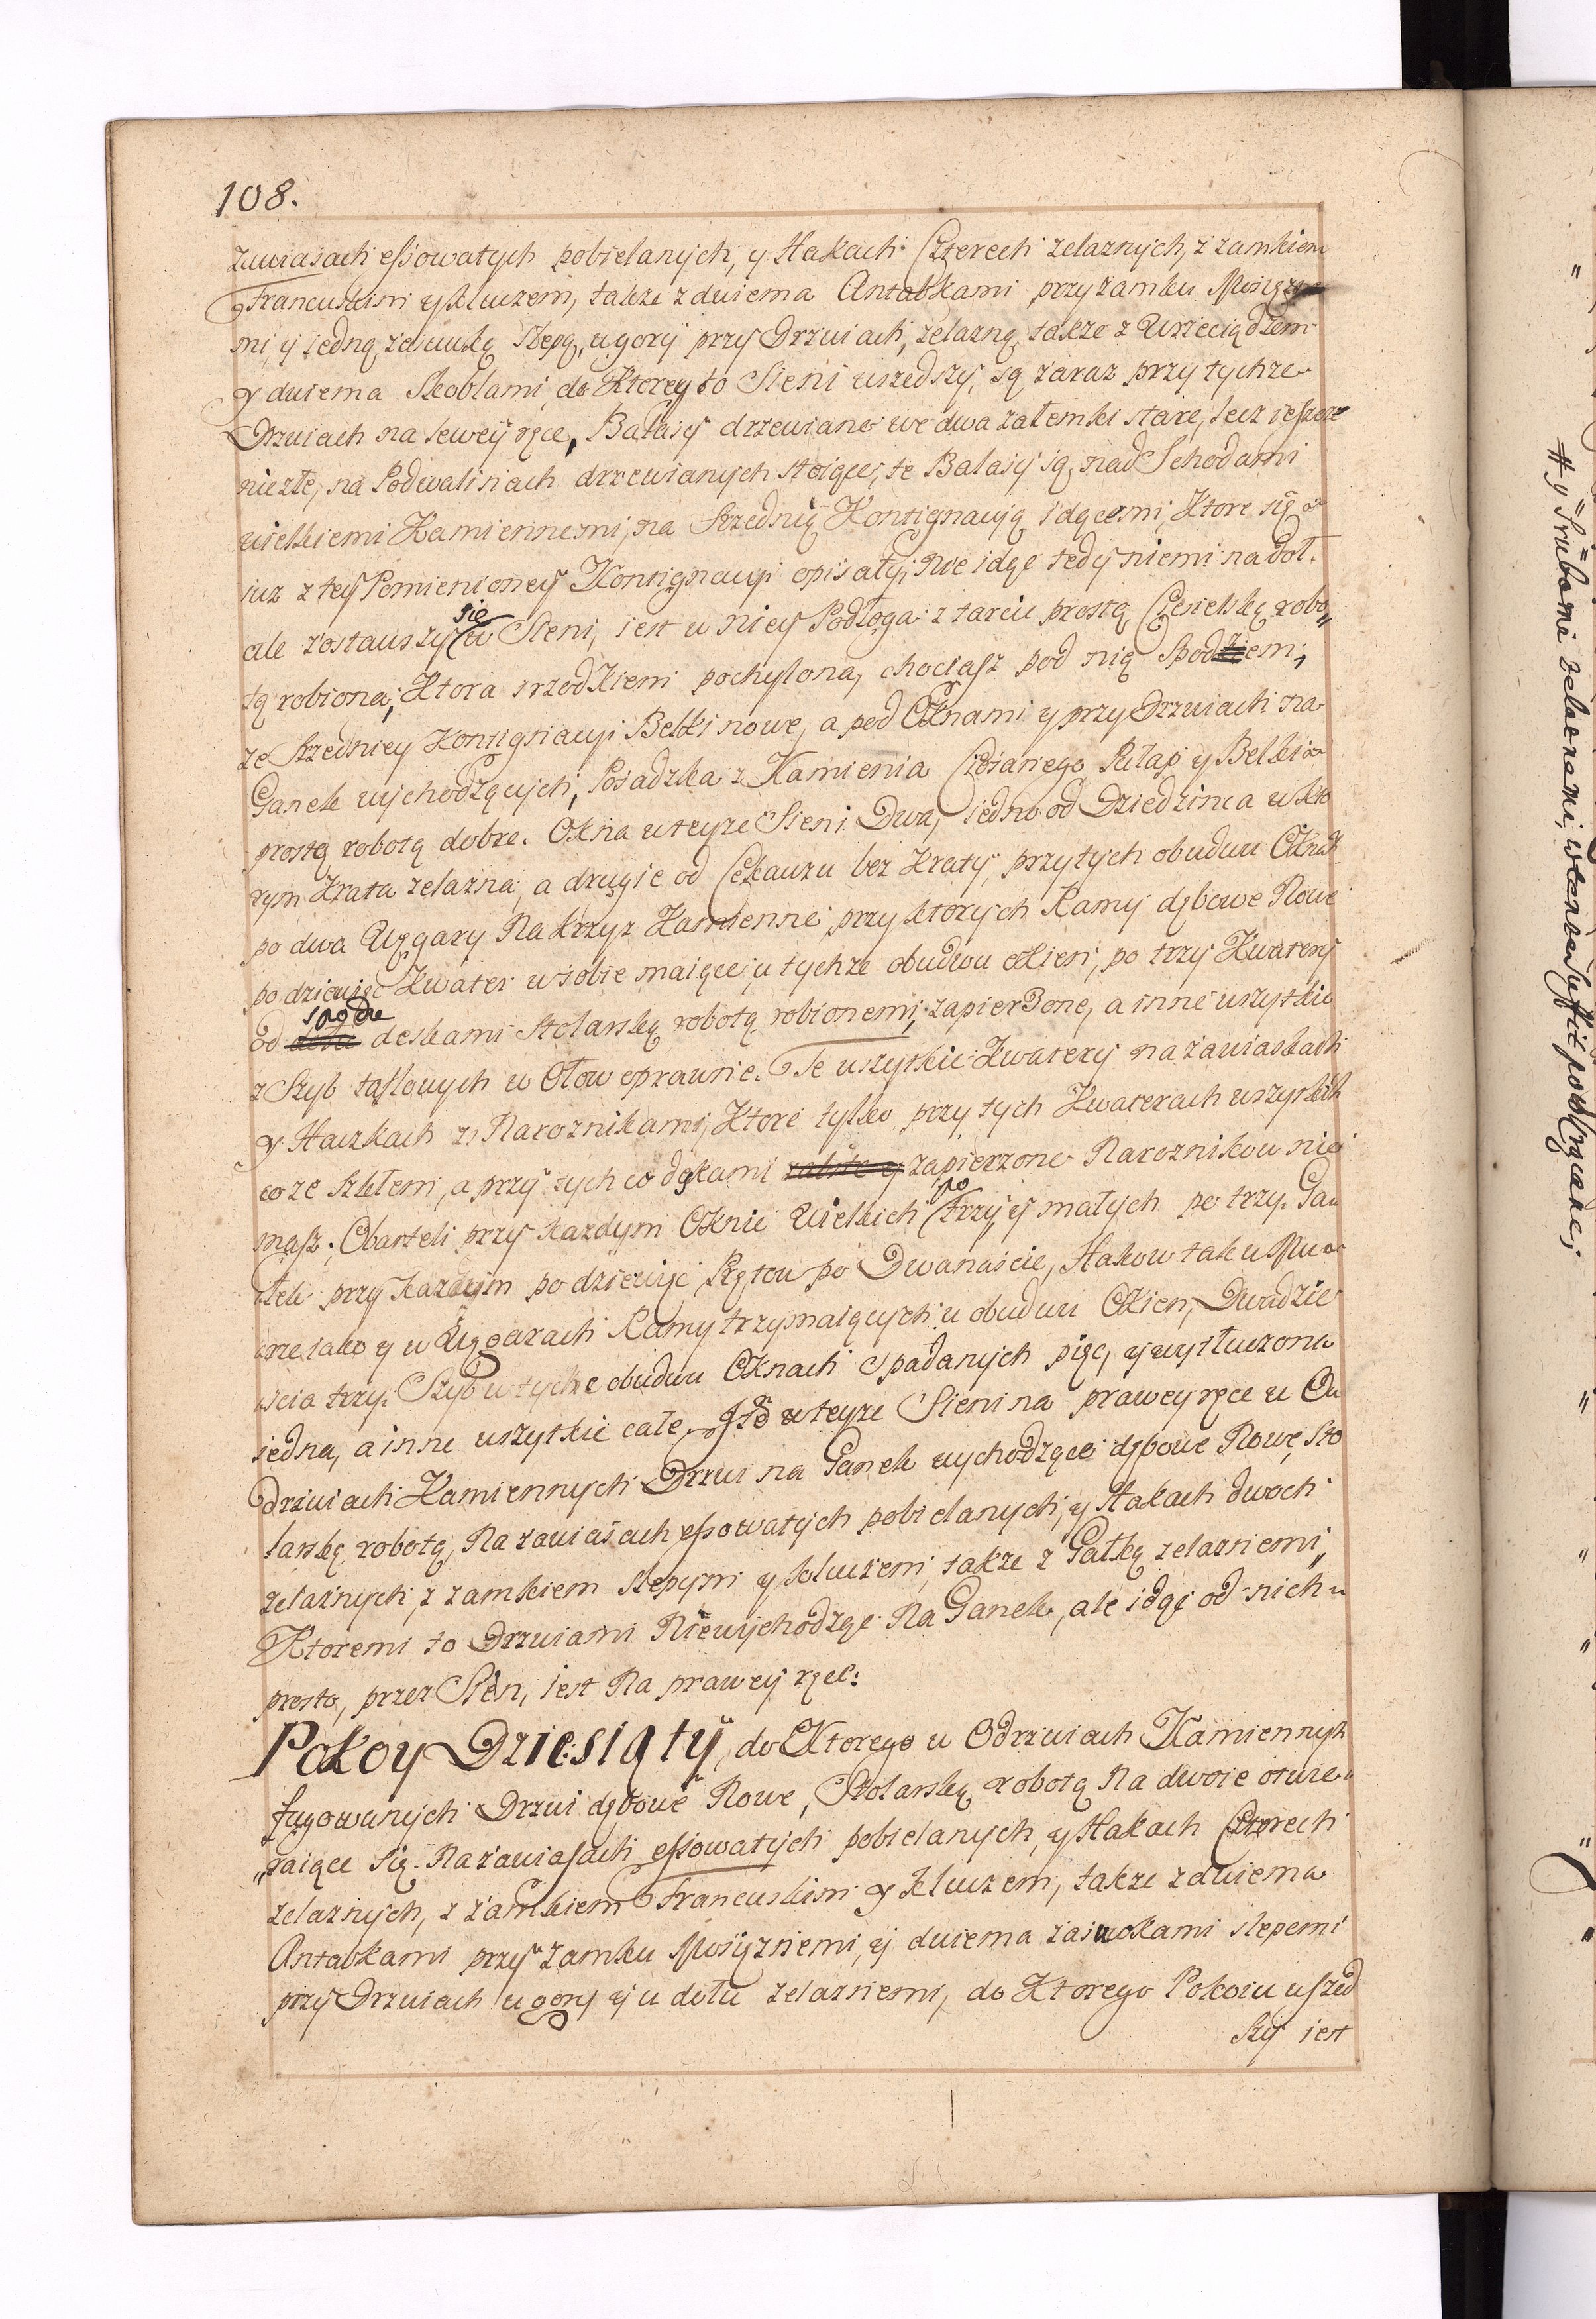 108.
zawiasach essowatych pobielanych, y Hakach Czterech zelaznych, z zamkiem
Francuskim y kluczem, takze z dwiema Antabkami przy zamku Mosięzne
mi, y iedną zasuwką slepą, u gory przy Drzwiach, zelazną, takze z Wrzeciądzem
y dwiema Skoblami, do Ktorey to Sieni wszedszy, są zaraz przy tychze
Drzwiach na lewey ręce, Balasy drzewiane we dwa załemki stare, lecz ieszcze
niezłe, na Podwalinach drzewianych stoiące, te Balasy są nad Schodami
wielkiemi Kamiennemi, na Srzednią Kontignacyą idącemi, Ktore się
iuz z tey Pomienioney Kontignacyi opisały, Nie idąc tedy niemi na doł.
ale zostawszy się w Sieni, iest w niey Podłoga z tarcic prostą Ciesielską robo„
tą robiona, Ktora srzodkiem pochylona, chociasz pod nią Spodem,
ze Srzedniey Kontignacyi Belki nowe, a pod Oknami y przy Drzwiach na
Ganek wychodzących, Posadzka z Kamienia Ciosanego, Pułap y Belki
prostą robotą dobre. Okna w teyze Sieni Dwa, iedno od Dziedzinca w kto
rym Krata zelazna, a drugie od Cekauzu bez Kraty, przy tych obudwu Oknach
po dwa Węgary Na krzyz Kamienne, przy ktorych Ramy dębowe Nowe
po dziewięc Kwater w sobie maiące, u tychze obudwu okien, po trzy Kwatery
od spodu deskami Stolarską robotą robionemi, zapierzone, a inne wszytkie
z Szyb taflowych w Ołow oprawne. Te wszytkie Kwatery na zawiaskach
y Haczkach z Naroznikami, Ktore tylko przy tych Kwaterach wszytkich
co ze Szkłem, a przy tych co dękami zapierzone Naroznikow nie
masz. Obarteli przy kazdym Oknie Wielkich po Trzy, y małych po trzy. Ga
łek przy kazdym po dziewięc Prętow po Dwanascie, Hakow tak w Mu
rze iako y w Węgarach Ramy trzymaiących u obudwu Okien, Dwadzie
scia trzy. Szyb w tychze obudwu Oknach spadanych pięc, y wytłuczona
iedna, a inne wszytkie całe. Ite w teyze Sieni na prawey ręce w O
drzwiach Kamiennych Drzwi na Ganek wychodzące dębowe Nowe, Sto
larską robotą, Na zawiasach essowatych pobielanych, y Hakach dwoch
zelaznych, z zamkiem slepym y kluczem, takze z Gałką zelaznemi,
Ktoremi to Drzwiami Niewychodząc Na Ganek, ale idąc od nich
prosto, przez Sien, iest Na prawey ręce:
Pokoy Dziesiąty, do Ktorego w Odrzwiach Kamiennych
fugowanych Drzwi dębowe Nowe, Stolarską robotą Na dwoie otwie„
„raiące się. Na zawiasach essowatych pobielanych, y Hakach Czterech
zelaznych, z zamkiem Francuskim y Kluczem, takze z dwiema
Antabkami przy zamku Mosięznemi, y dwiema zasuwkami slepemi
przy Drzwiach u gory y u dołu zelaznemi, do Ktorego Pokoiu wszed
szy iest
# y Srubami zelaznemi,